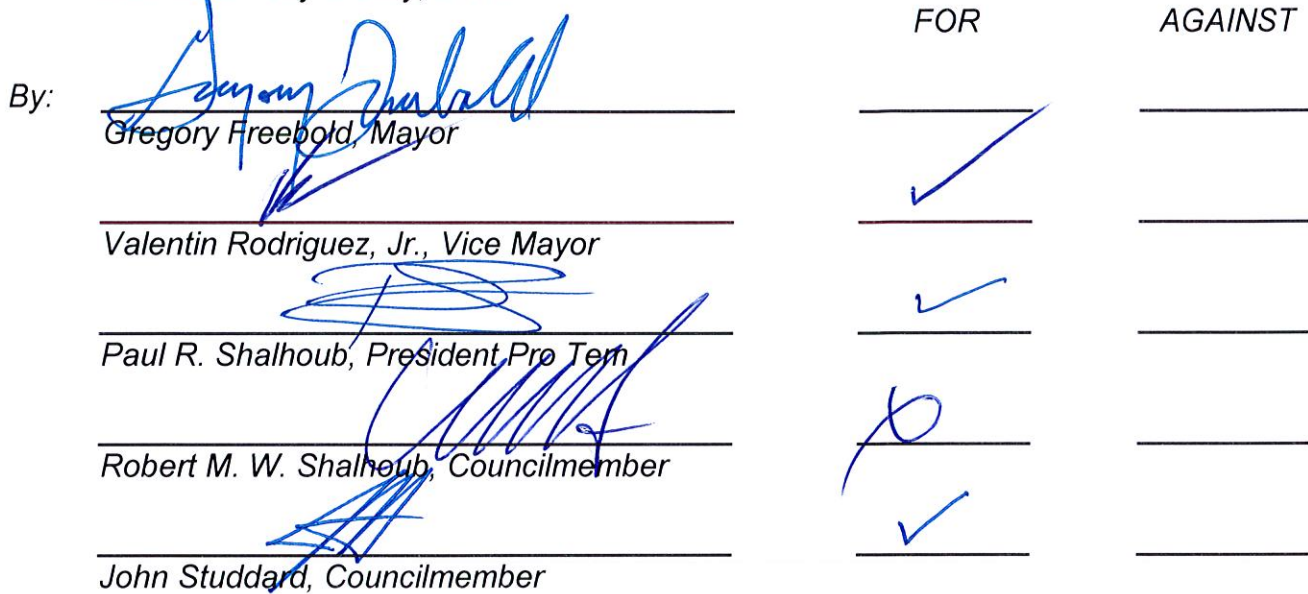 FOR AGAINST
By:
Gregory Freebold, Mayor
Valentin Rodriguez, Jr., Vice Mayor
Paul R. Shalhoub, President Pro Tem
Robert M. W. Shalhoub, Councilmember
John Studdard, Councilmember